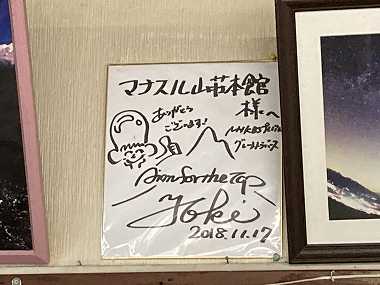 マナスル山荘本館
様へ
ありがとう
ございます!
NHK BSプレミアム
グレートトラバース
Aim for the TOP
Yoki
2018.11.17